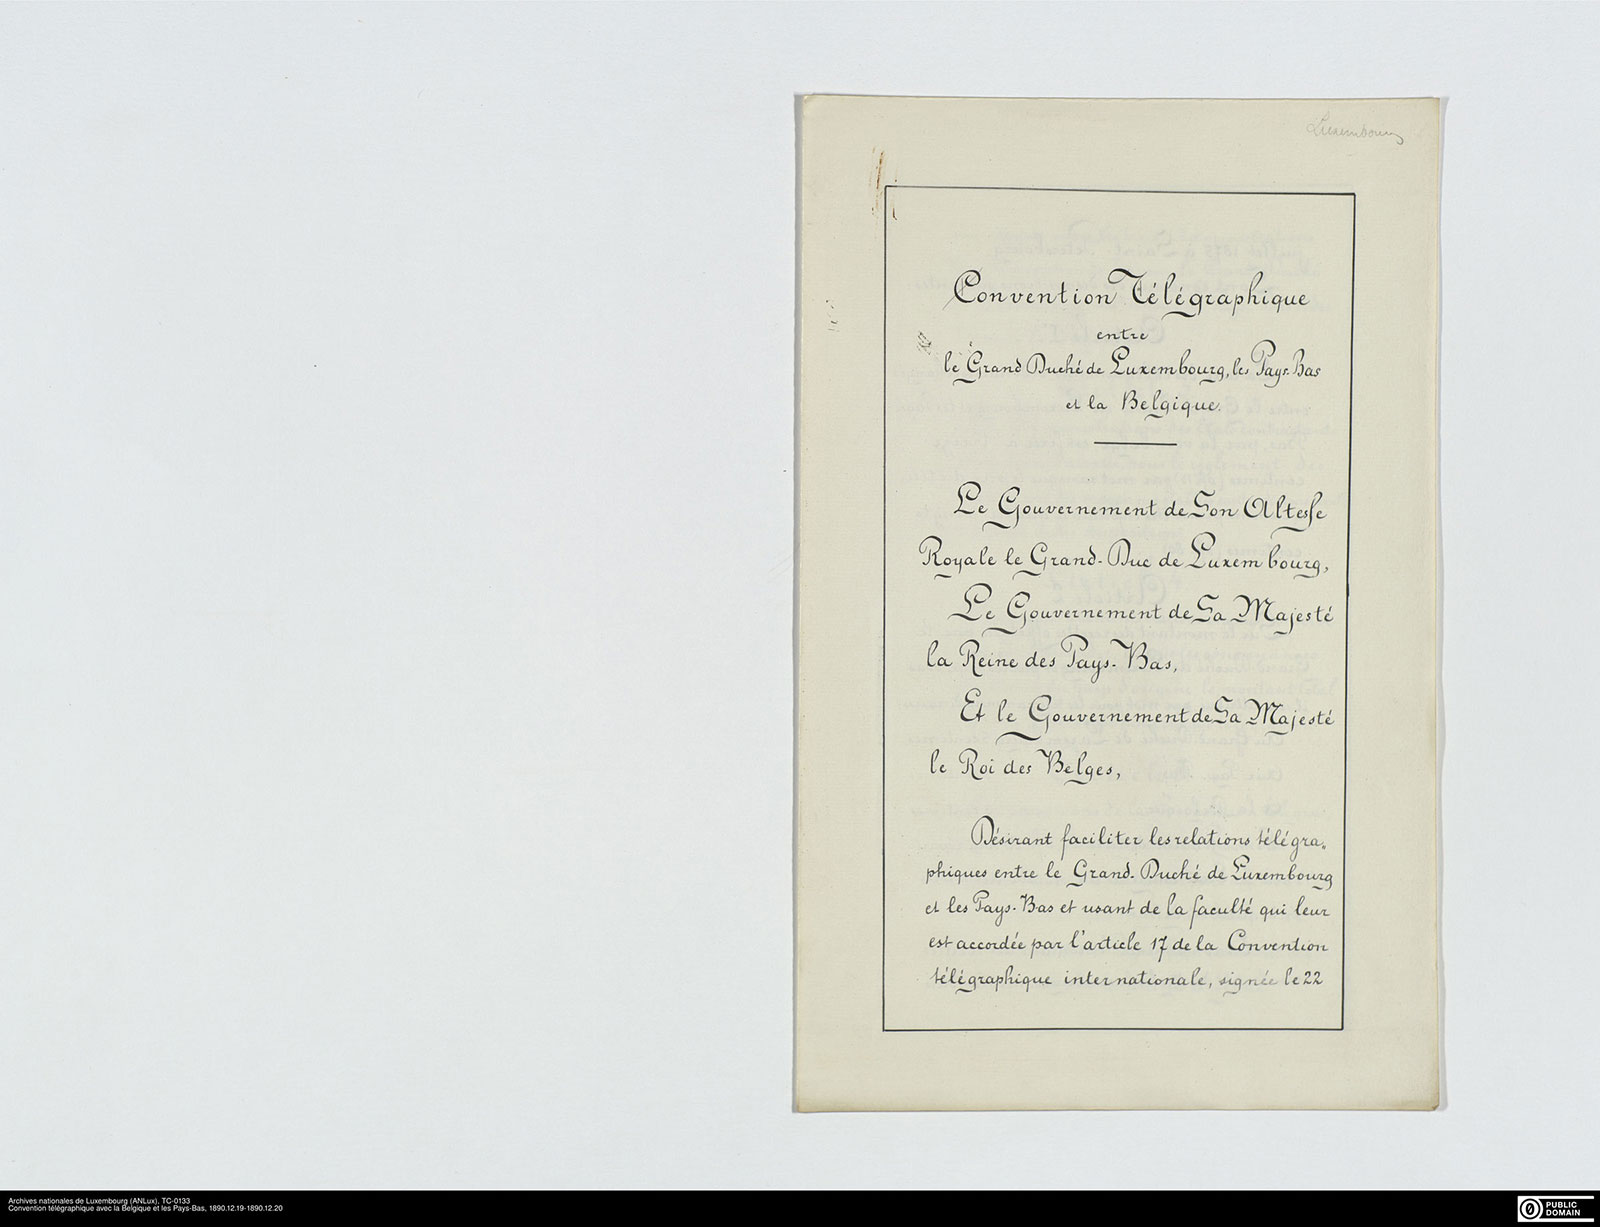 Luxembourg
Convention Télégraphique
entre
le Grand Duché de Luxembourg, les Pays-Bas
et la Belgique.
Le Gouvernement de Son Altesse
Royale le Grand-Duc de Luxembourg,
Le Gouvernement de Sa Majesté
la Reine des Pays-Bas,
Et le Gouvernement de Sa Majesté
le Roi des Belges,
Désirant faciliter les relations télégra„
phiques entre le Grand-Duché de Luxembourg
et les Pays-Bas et usant de la faculté qui leur
est accordée par l'article 17 de la Convention
télégraphique internationale, signée le 22
Archives nationales de Luxembourg (ANLux), TC-0133
Convention télégraphique avec la Belgique et les Pays-Bas, 1890.12.19-1890.12.20
PUBLIC
DOMAIN